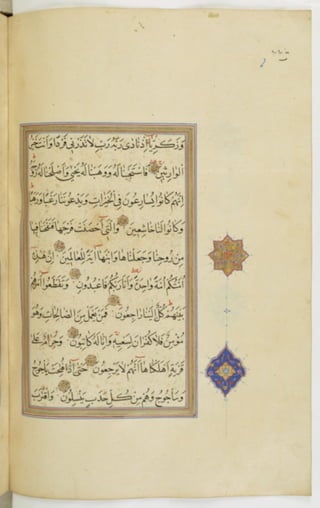 وزكريا إذ نادى ربه رب لا تذرني فردا وأنت خير
الوارثين فاستجبنا له ووهبنا له يحيى وأصلحنا له زوجه
إنهم كانوا يسارعون في الخيرات ويدعوننا رغبا ورهبا
وكانوا لنا خاشعين والتي أحصنت فرجها فنفخنا فيها
من روحنا وجعلناها وابنها آية للعالمين إن هذه
أمتكم أمة واحدة وأنا ربكم فاعبدون وتقطعوا أمرهم
بينهم كل إلينا راجعون فمن يعمل من الصالحات وهو
مؤمن فلا كفران لسعيه وإنا له كاتبون وحرام على
قرية أهلكناها أنهم لا يرجعون حتى إذا فتحت يأجوج
ومأجوج وهم من كل حدب ينسلون واقترب